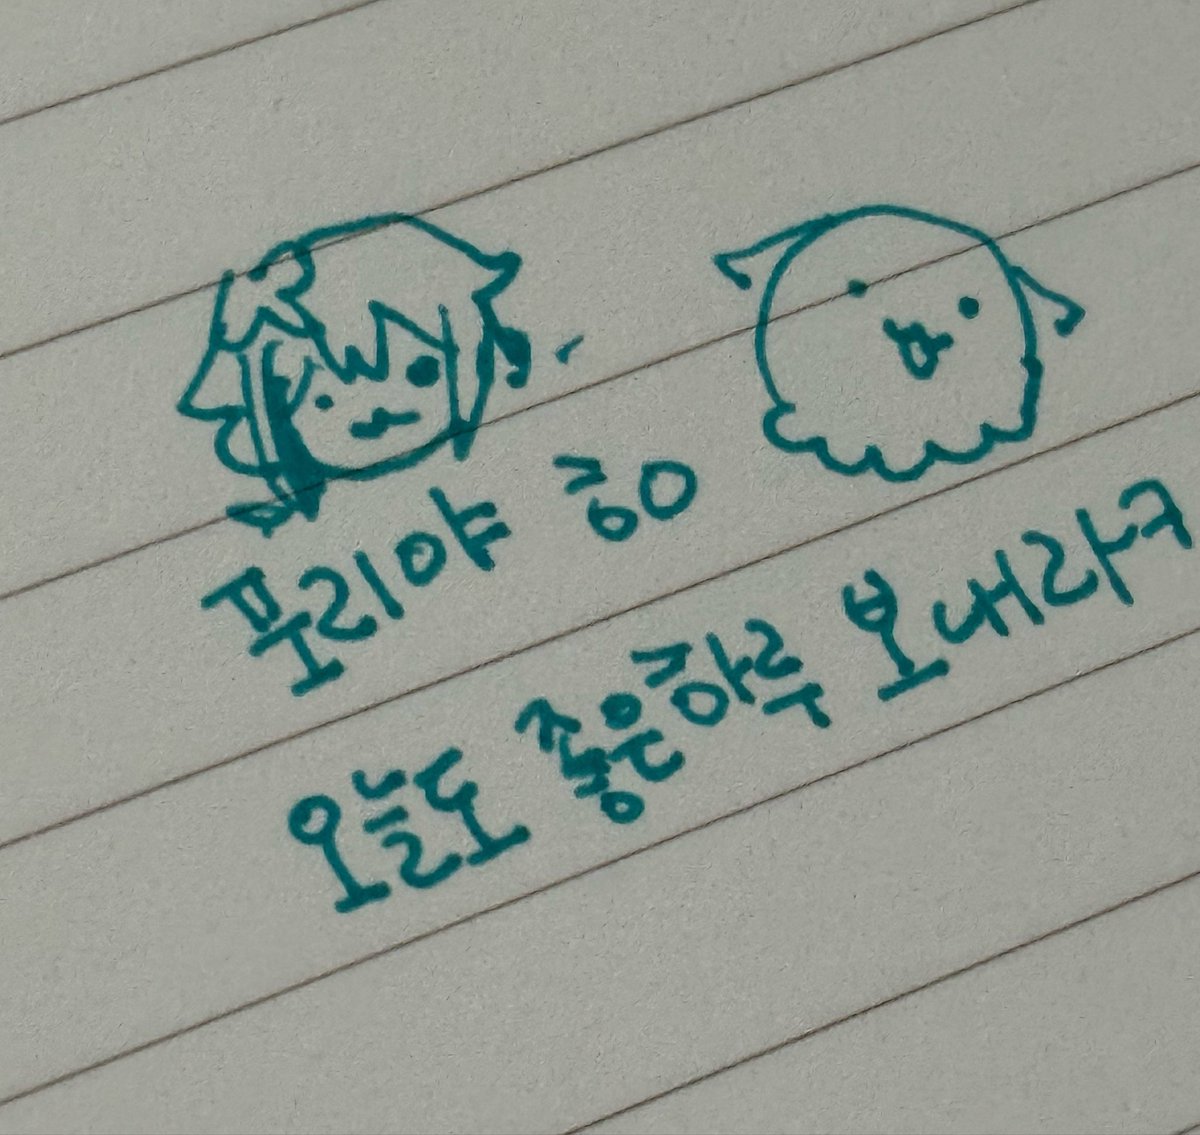 푸리야 ㅎㅇ
오늘도 좋은하루 보내라ㅋ